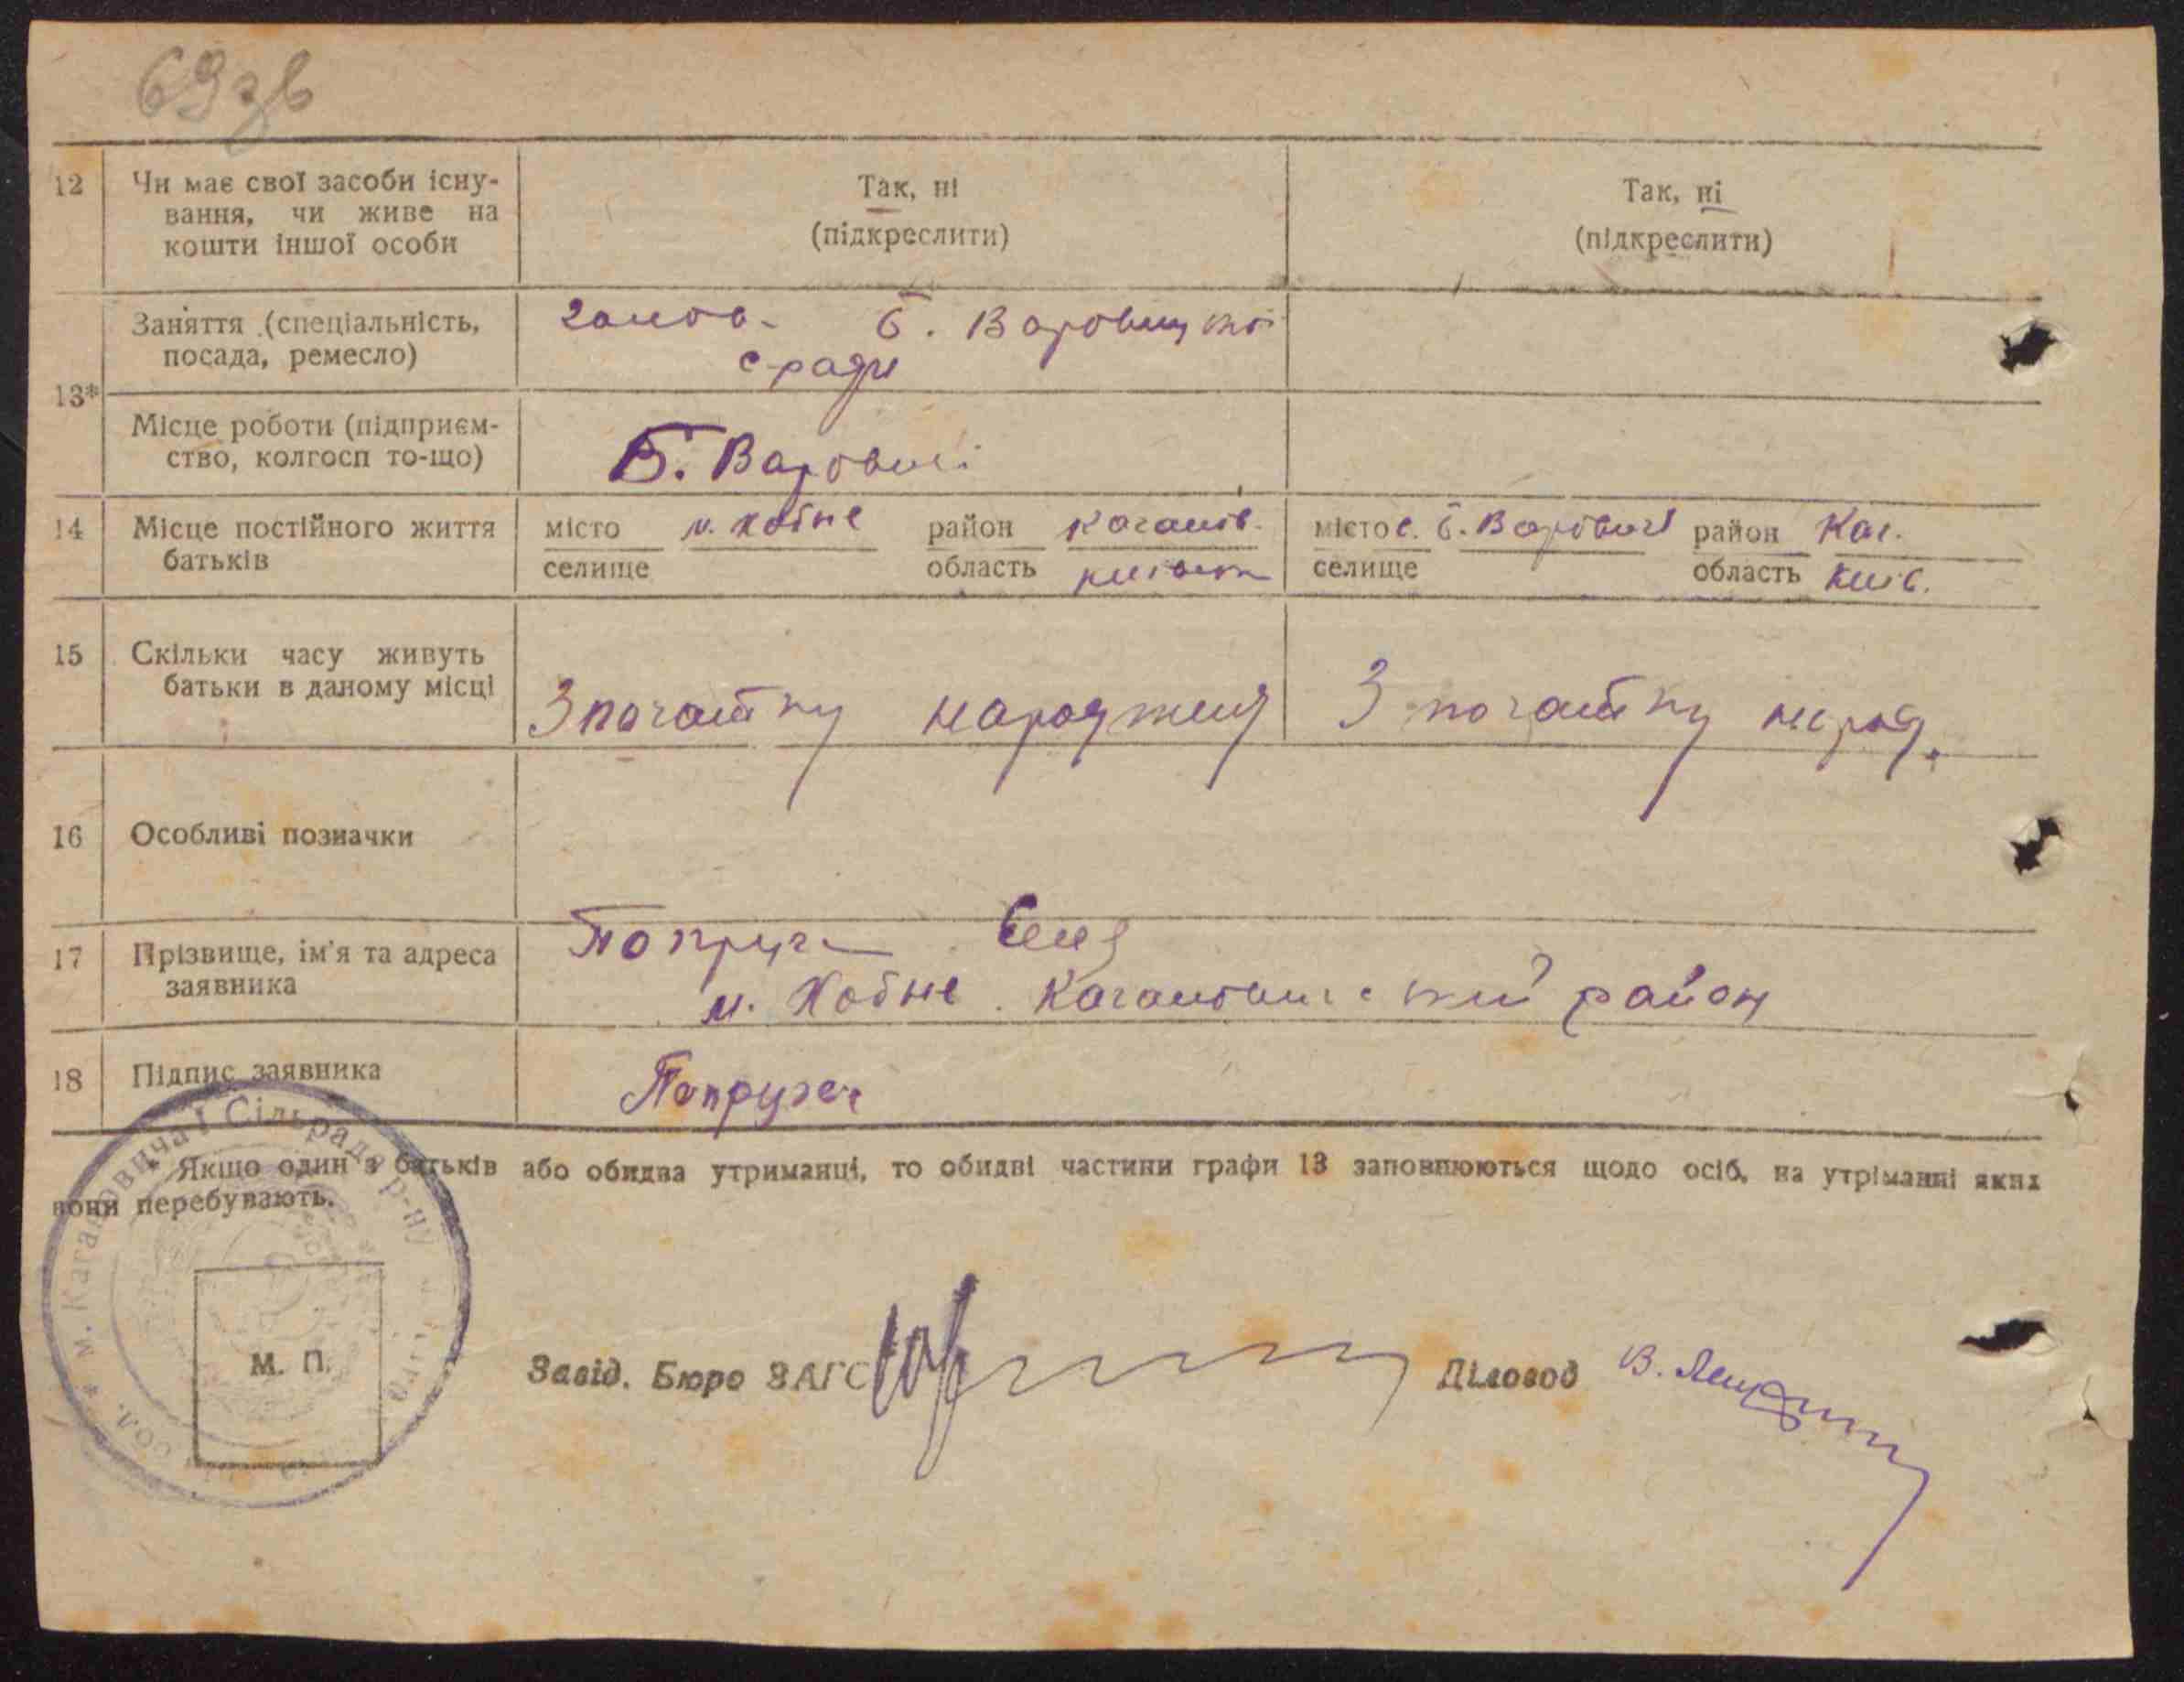 69 зв
12 Чи має свої засоби існу-
вання, чи живе на
кошти іншої особи
Так, ні
(підкреслити)
Так, ні
(підкреслити)
13*
Заняття (спеціальність,
посада, ремесло)
голов. Б. Варовицької
с-ради
Місце роботи (підприєм-
ство, колгосп то-що)
Б. Варовичі
14 Місце постійного життя
батьків
місто м. Хабне район Каганов.
селище область київськ
місто с. Б. Варовичі район Каг.
селище область київ.
15 Скільки часу живуть
батьки в даному місці
З початку народження
З початку народ.
16 Особливі позначки
17 Прізвище, ім'я та адреса
заявника
Попруга
м. Хабне Кагановический район
18 Підпис заявника
Попруга
* Якщо один з батьків або обидва утриманці, то обидві частини графи 13 заповнюються щодо осіб, на утріманні яких
вони перебувають.
м. Кагановича I Сільрада р-ну
М. П.
Завід. Бюро ЗАГС
Діловод В.